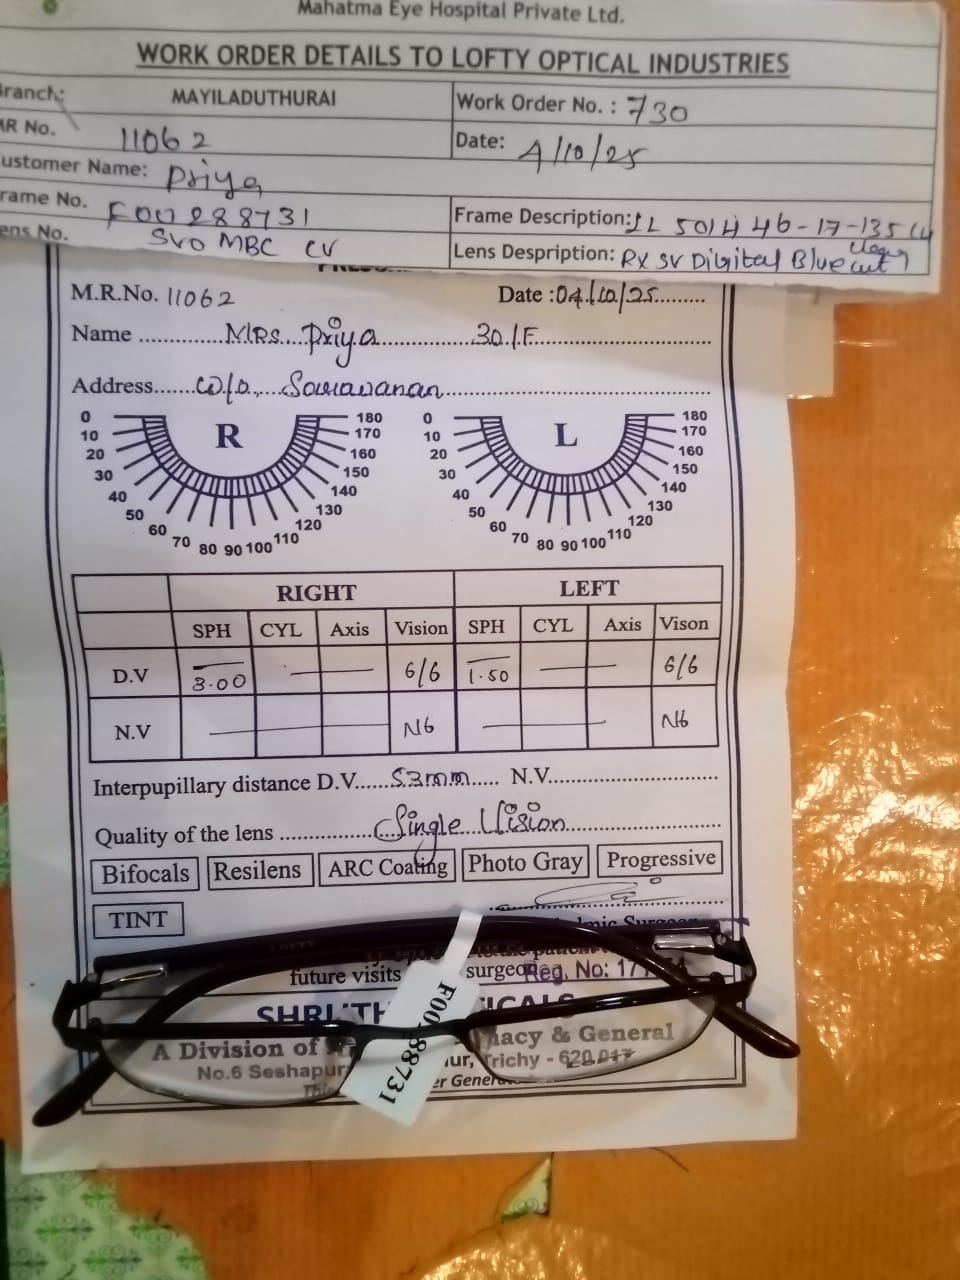 Mahatma Eye Hospital Private Ltd.
WORK ORDER DETAILS TO LOFTY OPTICAL INDUSTRIES
Branch: MAYILADUTHURAI Work Order No. : 730
MR No. 11062 Date: 4/10/25
ustomer Name: Priya
rame No. F00288731 Frame Description: 5014 46-17-135 C4
ens No. SVO MBC CV Lens Despription: RX SV Digital Bluecut
M.R.No. 11062 Date :04/10/25
Name Mrs. Priya 30/F
Address W/o. Saravanan
0 10 20 30 40 50 60 70 80 90 100 110 120 130 140 150 160 170 180
R
0 10 20 30 40 50 60 70 80 90 100 110 120 130 140 150 160 170 180
L
RIGHT LEFT
SPH CYL Axis Vision SPH CYL Axis Vison
D.V — 3.00 — 6/6 — 1.50 — 6/6
N.V — N6 — N6
Interpupillary distance D.V. 53mm N.V.
Quality of the lens Single Vision
Bifocals Resilens ARC Coating Photo Gray Progressive
TINT
future visits surgeon Reg. No:
A Division of macy & General
No.6 Seshapur ur, Trichy - 620 017
F00288731